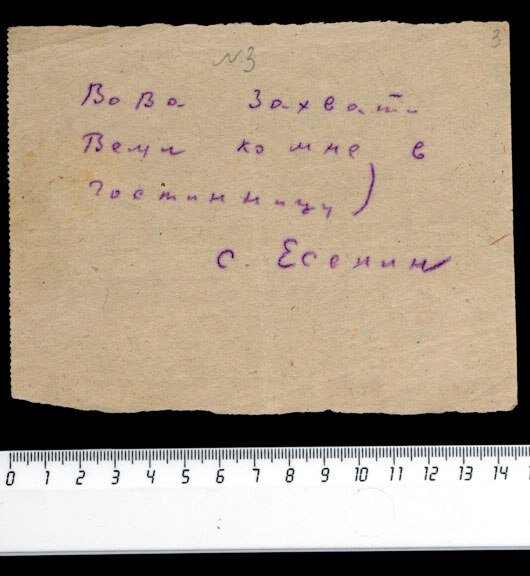 N3
3
Вова Захвати
Вещи ко мне в
гостинницу
С. Есенин
0 1 2 3 4 5 6 7 8 9 10 11 12 13 14